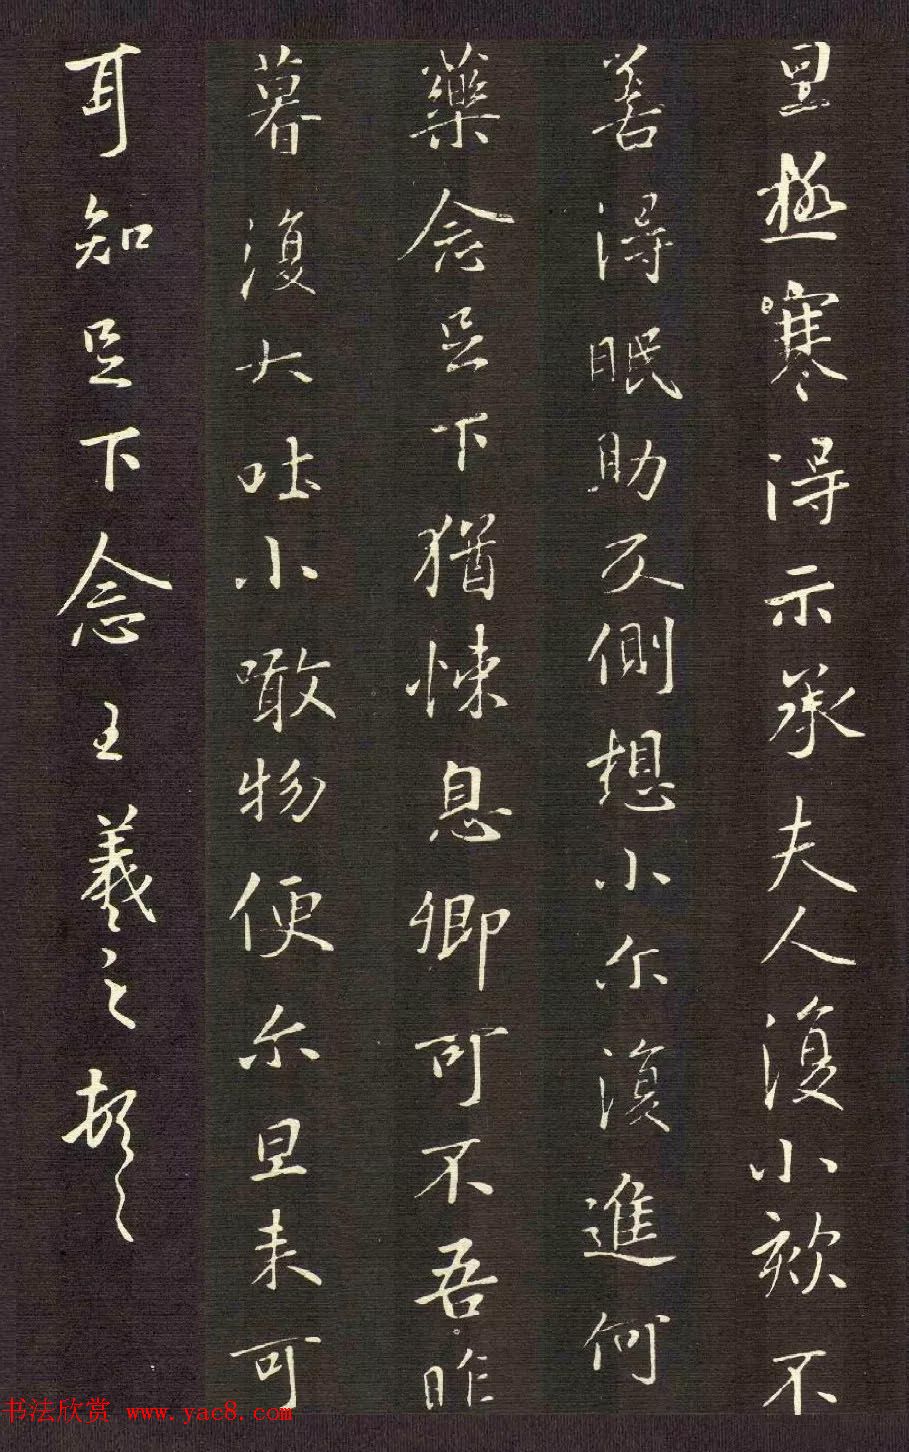 里極寒得示承夫人復小欬不
善得眠助反側想小尒復進何
藥念足下猶悚息卿可不吾昨
暮復大吐小噉物便尒旦来可
耳知足下念王羲之頓首
书法欣赏 www.yac8.com